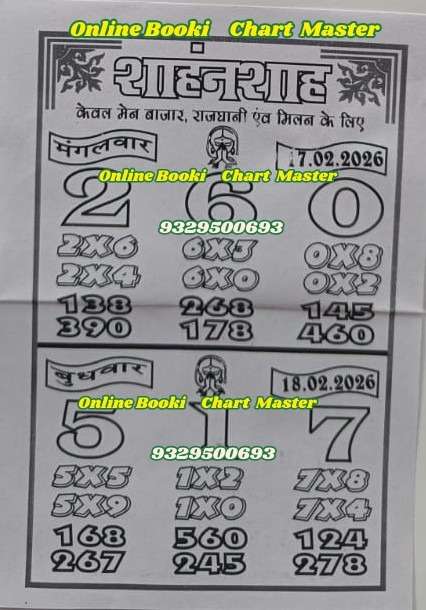 Online Booki Chart Master
शाहंनशाह
केवल मेन बाजार, राजधानी एंव मिलन के लिए
मंगलवार 17.02.2026
2 6 0
Online Booki Chart Master
9329500693
2X6 6X3 0X8
2X4 6X0 0X2
138 268 145
390 178 460
बुधवार 18.02.2026
Online Booki Chart Master
5 1 7
9329500693
5X5 1X2 7X8
5X9 1X0 7X4
168 560 124
267 245 278